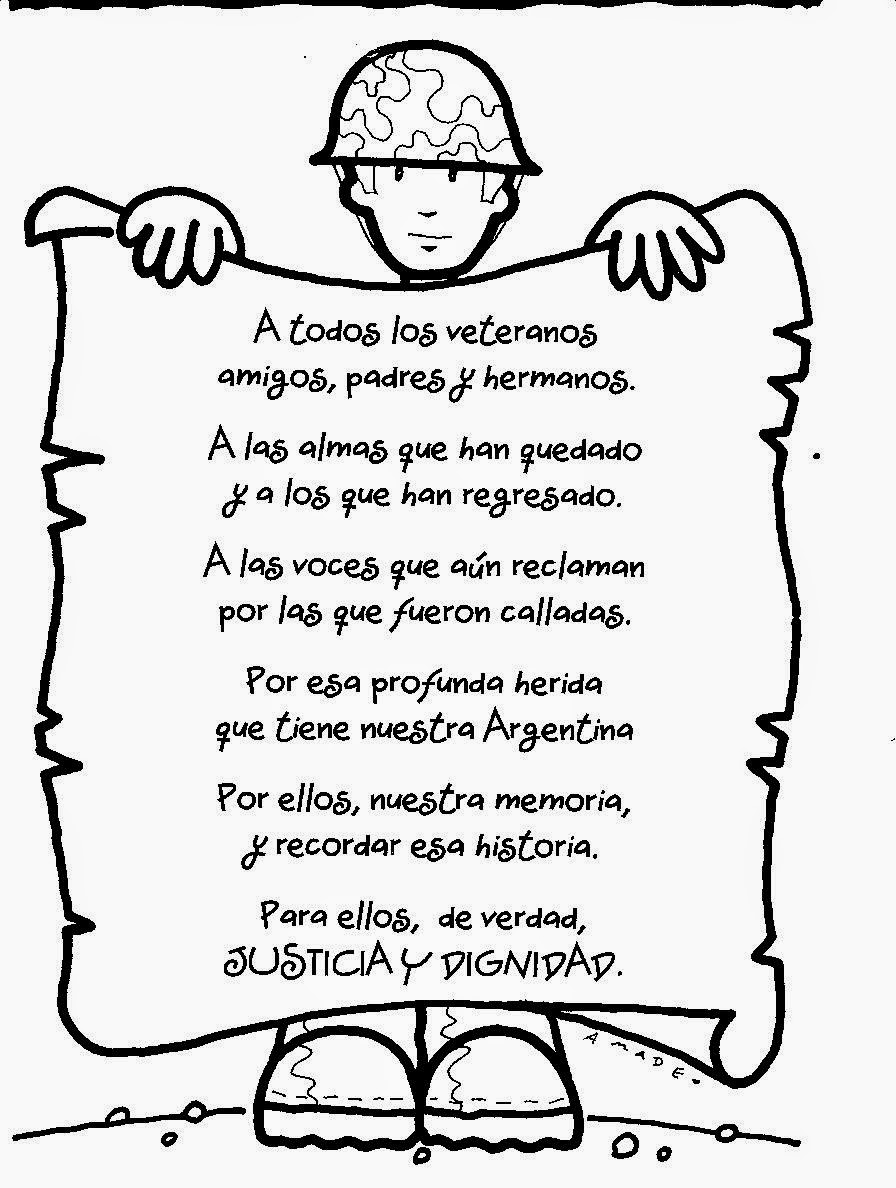 A todos los veteranos
amigos, padres y hermanos.
A las almas que han quedado
y a los que han regresado.
A las voces que aún reclaman
por las que fueron calladas.
Por esa profunda herida
que tiene nuestra Argentina
Por ellos, nuestra memoria,
y recordar esa historia.
Para ellos, de verdad,
JUSTICIA Y DIGNIDAD.
AMADE.